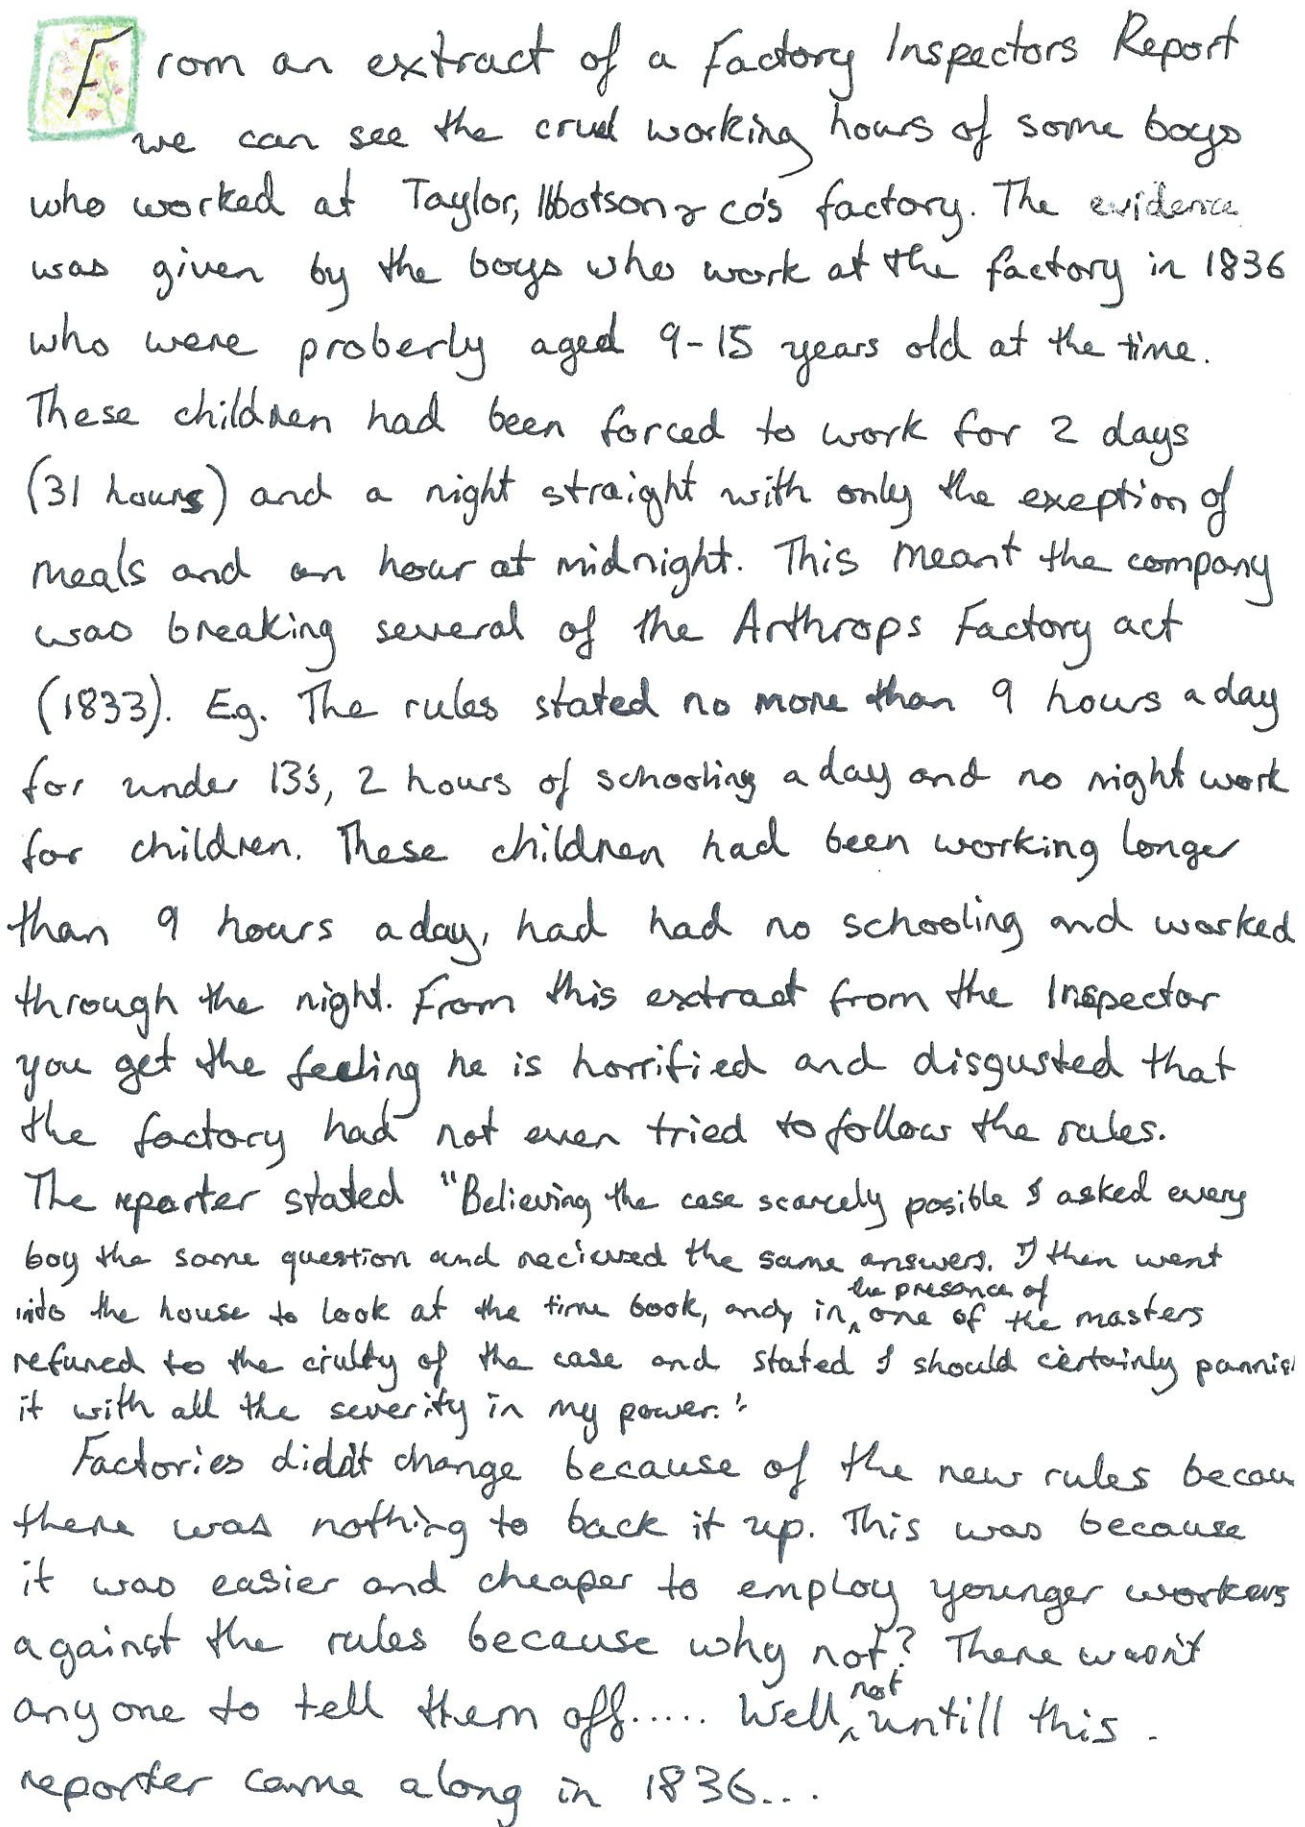 From an extract of a Factory Inspectors Report
we can see the cruel working hours of some boys
who worked at Taylor, Ibbotson & co's factory. The evidence
was given by the boys who work at the factory in 1836
who were proberly aged 9-15 years old at the time.
These children had been forced to work for 2 days
(31 hours) and a night straight with only the exeption of
meals and an hour at midnight. This meant the company
was breaking several of the Arthrops Factory act
(1833). E.g. The rules stated no more than 9 hours a day
for under 13's, 2 hours of schooling a day and no night work
for children. These children had been working longer
than 9 hours a day, had had no schooling and worked
through the night. From this extract from the Inspector
you get the feeling he is horrified and disgusted that
the factory had not even tried to follow the rules.
The reporter stated "Believing the case scarcely posible I asked every
boy the same question and recieved the same answers. I then went
into the house to look at the time book, and, in the presence of one of the masters
refured to the crulty of the case and stated I should certainly pannis
it with all the severity in my power."
Factories didn't change because of the new rules becau
there was nothing to back it up. This was because
it was easier and cheaper to employ younger workers
against the rules because why not? There wasn't
anyone to tell them off..... Well, not untill this
reporter came along in 1836...